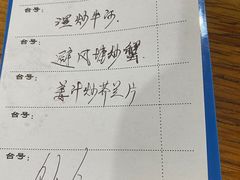 台号:
湿炒牛河.
台号:
避风塘炒蟹.
台号:
姜汁炒芥兰片
台号:
台号: